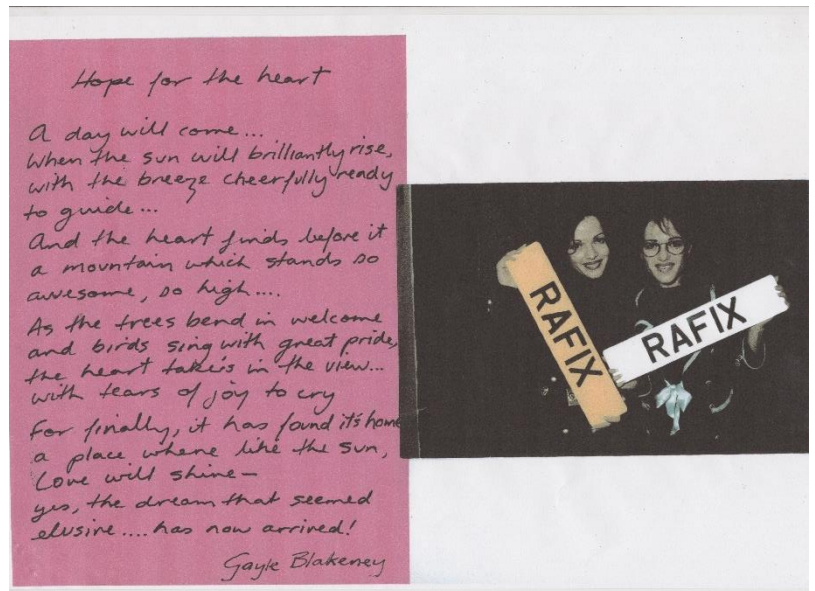 Hope for the heart
A day will come...
when the sun will brilliantly rise,
with the breeze cheerfully ready
to guide...
And the heart finds before it
a mountain which stands so
awesome, so high....
As the trees bend in welcome
and birds sing with great pride,
the heart takes in the view...
with tears of joy to cry
For finally, it has found it's home
a place where like the sun,
Love will shine—
yes, the dream that seemed
elusive.... has now arrived!
Gayle Blakeney
RAFIX
RAFIX